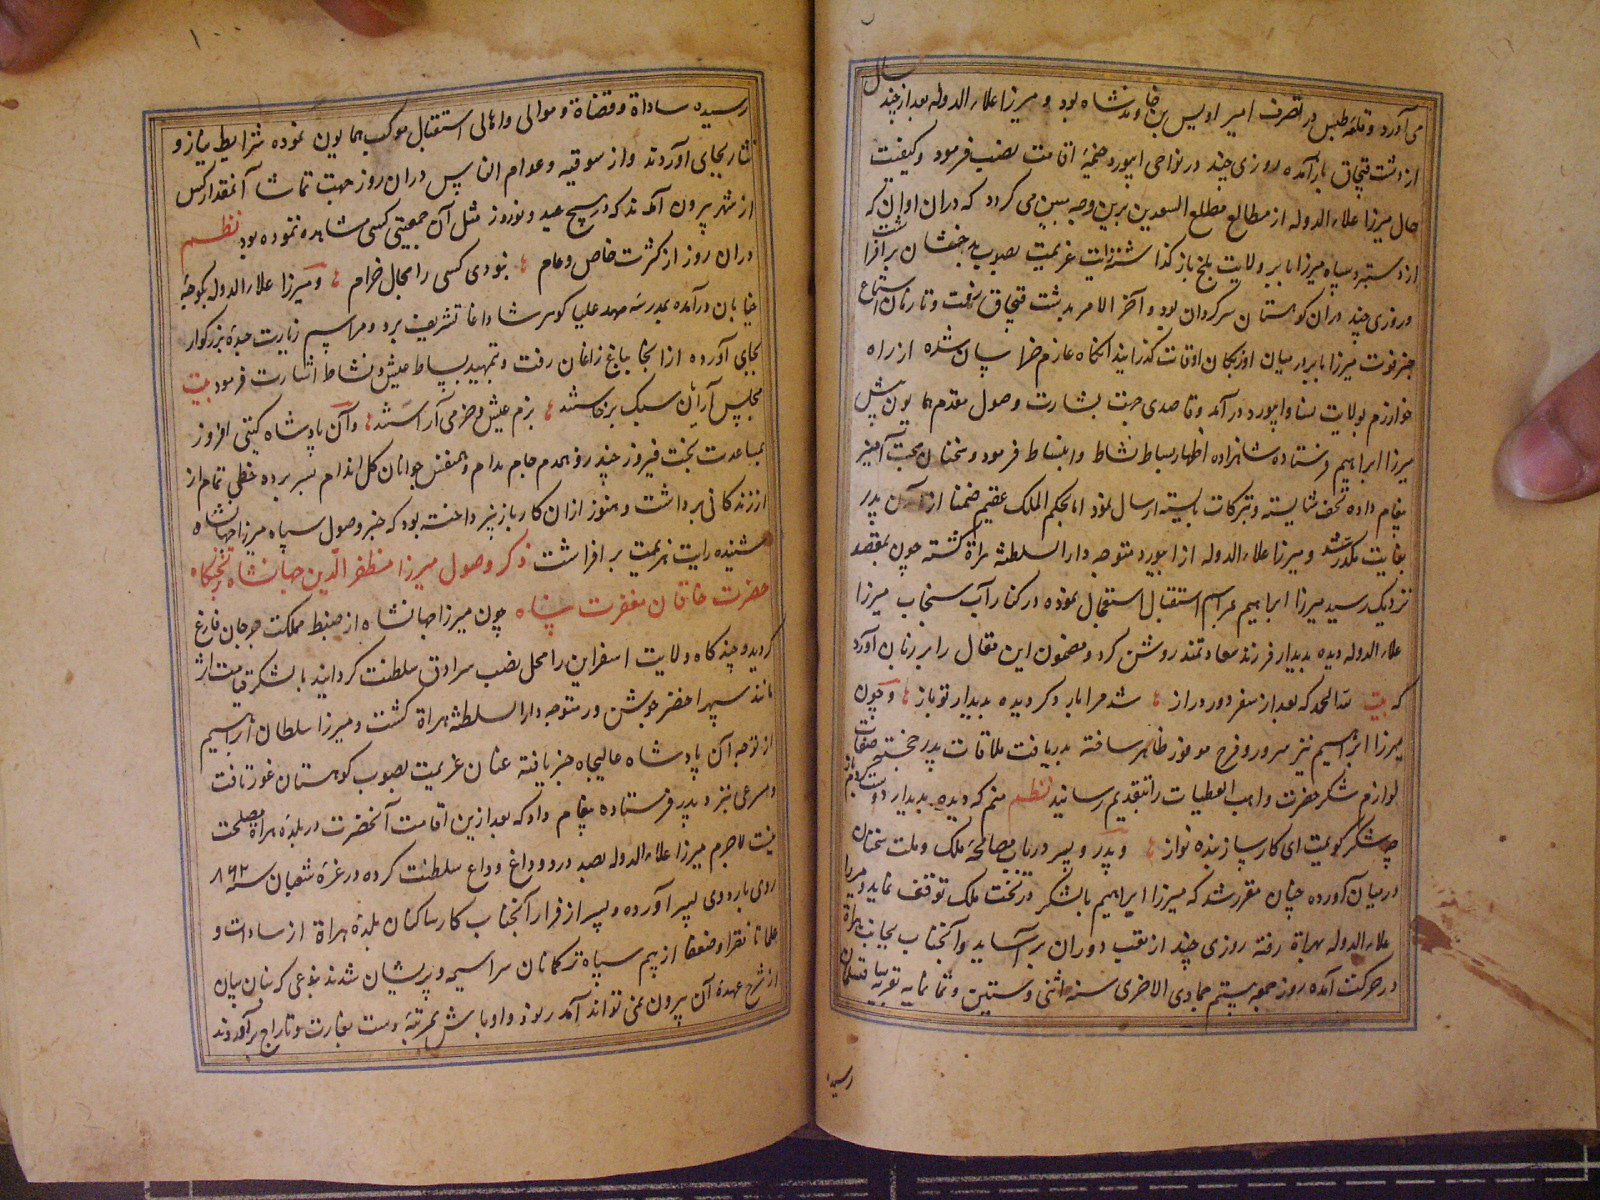 می آورد و قلعه طبس در تصرف امیر اویس بن خاوندشاه بود و میرزا علاء الدوله بعد از چند سال
از دشت قپچاق باز آمده روزی چند در نواحی ابیورد خیمهٔ اقامت نصب فرمود و کیفیت
حال میرزا علاء الدوله از مطالع مطلع السعدین برین وجه مبین می کردد که دران اوان که
از دستبرد سپاه میرزا بابر ولایت بلخ باز کذاشته رایت عزیمت بصوب بدخشان برافراشت
و روزی چند دران کوهستان سرکردان بود و آخر الامر بدشت قپچاق رفت و تا زمان استماع
خبر فوت میرزا بابر در میان اوزبکان اوقات کذرانید انکاه عازم خراسان شده از راه
خوارزم بولایت نسا و ابیورد در آمد و قاصدی جهت بشارت وصول مقدم همایون پیش
میرزا ابراهیم فرستاده شاهزاده اظهار بساط نشاط و انبساط فرمود و سخنان محبت آمیز
پیغام داده تحف شایسته و تبرکات بایسته ارسال نمود اما بحکم الملک عقیم ضمنا از آمدن پدر
بغایت مکدر شد و میرزا علاء الدوله از ابیورد متوجه دار السلطنة هراة کشته چون بمقصد
نزدیک رسید میرزا ابراهیم مراسم استقبال استعجال نموده در کنار آب سنجاب میرزا
علاء الدوله دیده بدیدار فرزند سعادتمند روشن کرد و مضمون این مقال را بر زبان آورد
که بیت لله الحمد که بعد از سفر دور دراز شد مرا بار دکر دیده بدیدار تو باز و چون
میرزا ابراهیم نیز سرور و فرح موفور ظاهر ساخته بدریافت ملاقات پدر خجسته صفات
لوازم شکر حضرت واهب العطیات را بتقدیم رسانید نظم منم که دیده بدیدار دوست کردم باز
چه شکر کویمت ای کارساز بنده نواز و پدر و پسر در باب مصالحهٔ ملک و ملت سخنان
در میان آورده چنان مقرر شد که میرزا ابراهیم با لشکر در تخت ملک توقف نماید و میرزا
علاء الدوله بهراة رفته روزی چند از تعب دوران بر آساید و آنجناب بجانب هراة
در حرکت آمده روز جمعه بیستم جمادی الاخری سنه اثنی و ستین و ثمانمایه
رسیده
۱۰۰
رسیده ساداة و قضاة و موالی و اهالی استقبال موکب همایون نموده شرایط نیاز و
نثار بجای آوردند و از سوقیه و عوام الناس دران روز جهت تماشا آنمقدار کس
از شهر بیرون آمدند که در هیچ عید و نوروز مثل آن جمعیتی کسی مشاهده ننموده بود نظم
دران روز از کثرت خاص و عام نبودی کسی را مجال خرام و میرزا علاء الدوله بکوچهٔ
خیابان درآمده بمدرسه مهد علیا کوهرشاد اغا تشریف برد و مراسم زیارت جدهٔ بزرکوار
بجای آورده از انجا بباغ زاغان رفت و تمهید بساط عیش و نشاط اشارت فرمود بیت
مجلس آرایان سبک برخاستند بزم عیش و خرمی آراستند و آن پادشاه کیتی افروز
بمساعدت بخت فیروز چند روز همدم جام مدام و همنفس جوانان کل اندام بسر برده حظی تمام از
از زندکانی برداشت و هنوز ازان کار باز نپرداخته بود که خبر وصول سپاه میرزا جهانشاه
شنیده رایت هزیمت برافراشت ذکر وصول میرزا مظفر الدین جهانشاه بتختکاه
حضرت خاقان مغفرت پناه چون میرزا جهانشاه از ضبط مملکت جرجان فارغ
کردید و چند کاه ولایت اسفراین را محل نصب سرادق سلطنت کردانید با لشکر قیامت اثر
مانند سپهر اخضر جوشن ور متوجه دار السلطنة هراة کشت و میرزا سلطان ابراهیم
از توجه آن پادشاه عالیجاه خبر یافته عنان عزیمت بصوب کوهستان غور تافت
و مسرعی نزد پدر فرستاده پیغام داد که بعد ازین اقامت آنحضرت در بلدهٔ هراة مصلحت
نیست لاجرم میرزا علاء الدوله بصد درد و داغ وداع سلطنت کرده در غرهٔ شعبان سنه ۸۶۲
روی باردوی پسر آورده و پس از فرار آنجناب کار ساکنان بلدهٔ هراة از سادات و
علما تا فقرا و ضعفا از بیم سپاه ترکمانان سراسیمه و پریشان شدند بنوعی که بنان بیان
از شرح عهدهٔ آن بیرون نمی تواند آمد رنود و اوباش دست بغارت و تاراج برآوردند